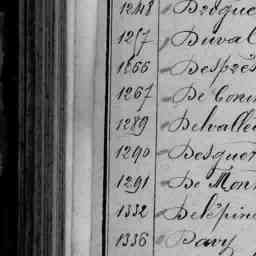 1248 " Drogue
1257 " Duval
1266 " Després
1267 " De Coni
1289 " Delvallee
1290 " Desquer
1291 " De Mon
1332 " Delépin
1336 " Davy